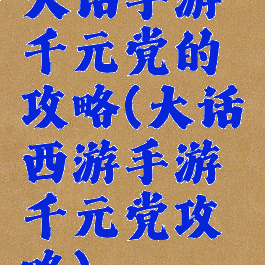 大话手游
千元党的
攻略(大话
西游手游
千元党攻
略)